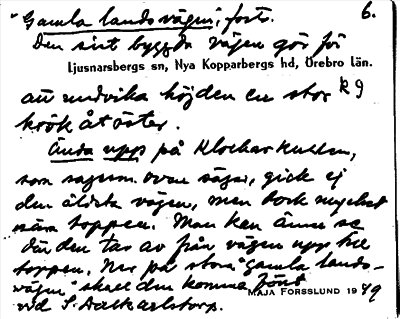 "Gamla landsvägen", forts. 6.
Den sist byggda vägen gör för
Ljusnarsbergs sn, Nya Kopparbergs hd, Örebro län.
att undvika höjden en stor k 9
krök åt öster.
Ända upp på Klockarkullen,
som sagesm. ovan säger, gick ej
den äldsta vägen, men dock mycket
nära toppen. Man kan ännu se
där den tar av från vägen upp till
toppen. Ner på stora "gamla lands-
vägen" skall den komma först
MAJA FORSSLUND 1939
vid S. Dalkarlstorp.